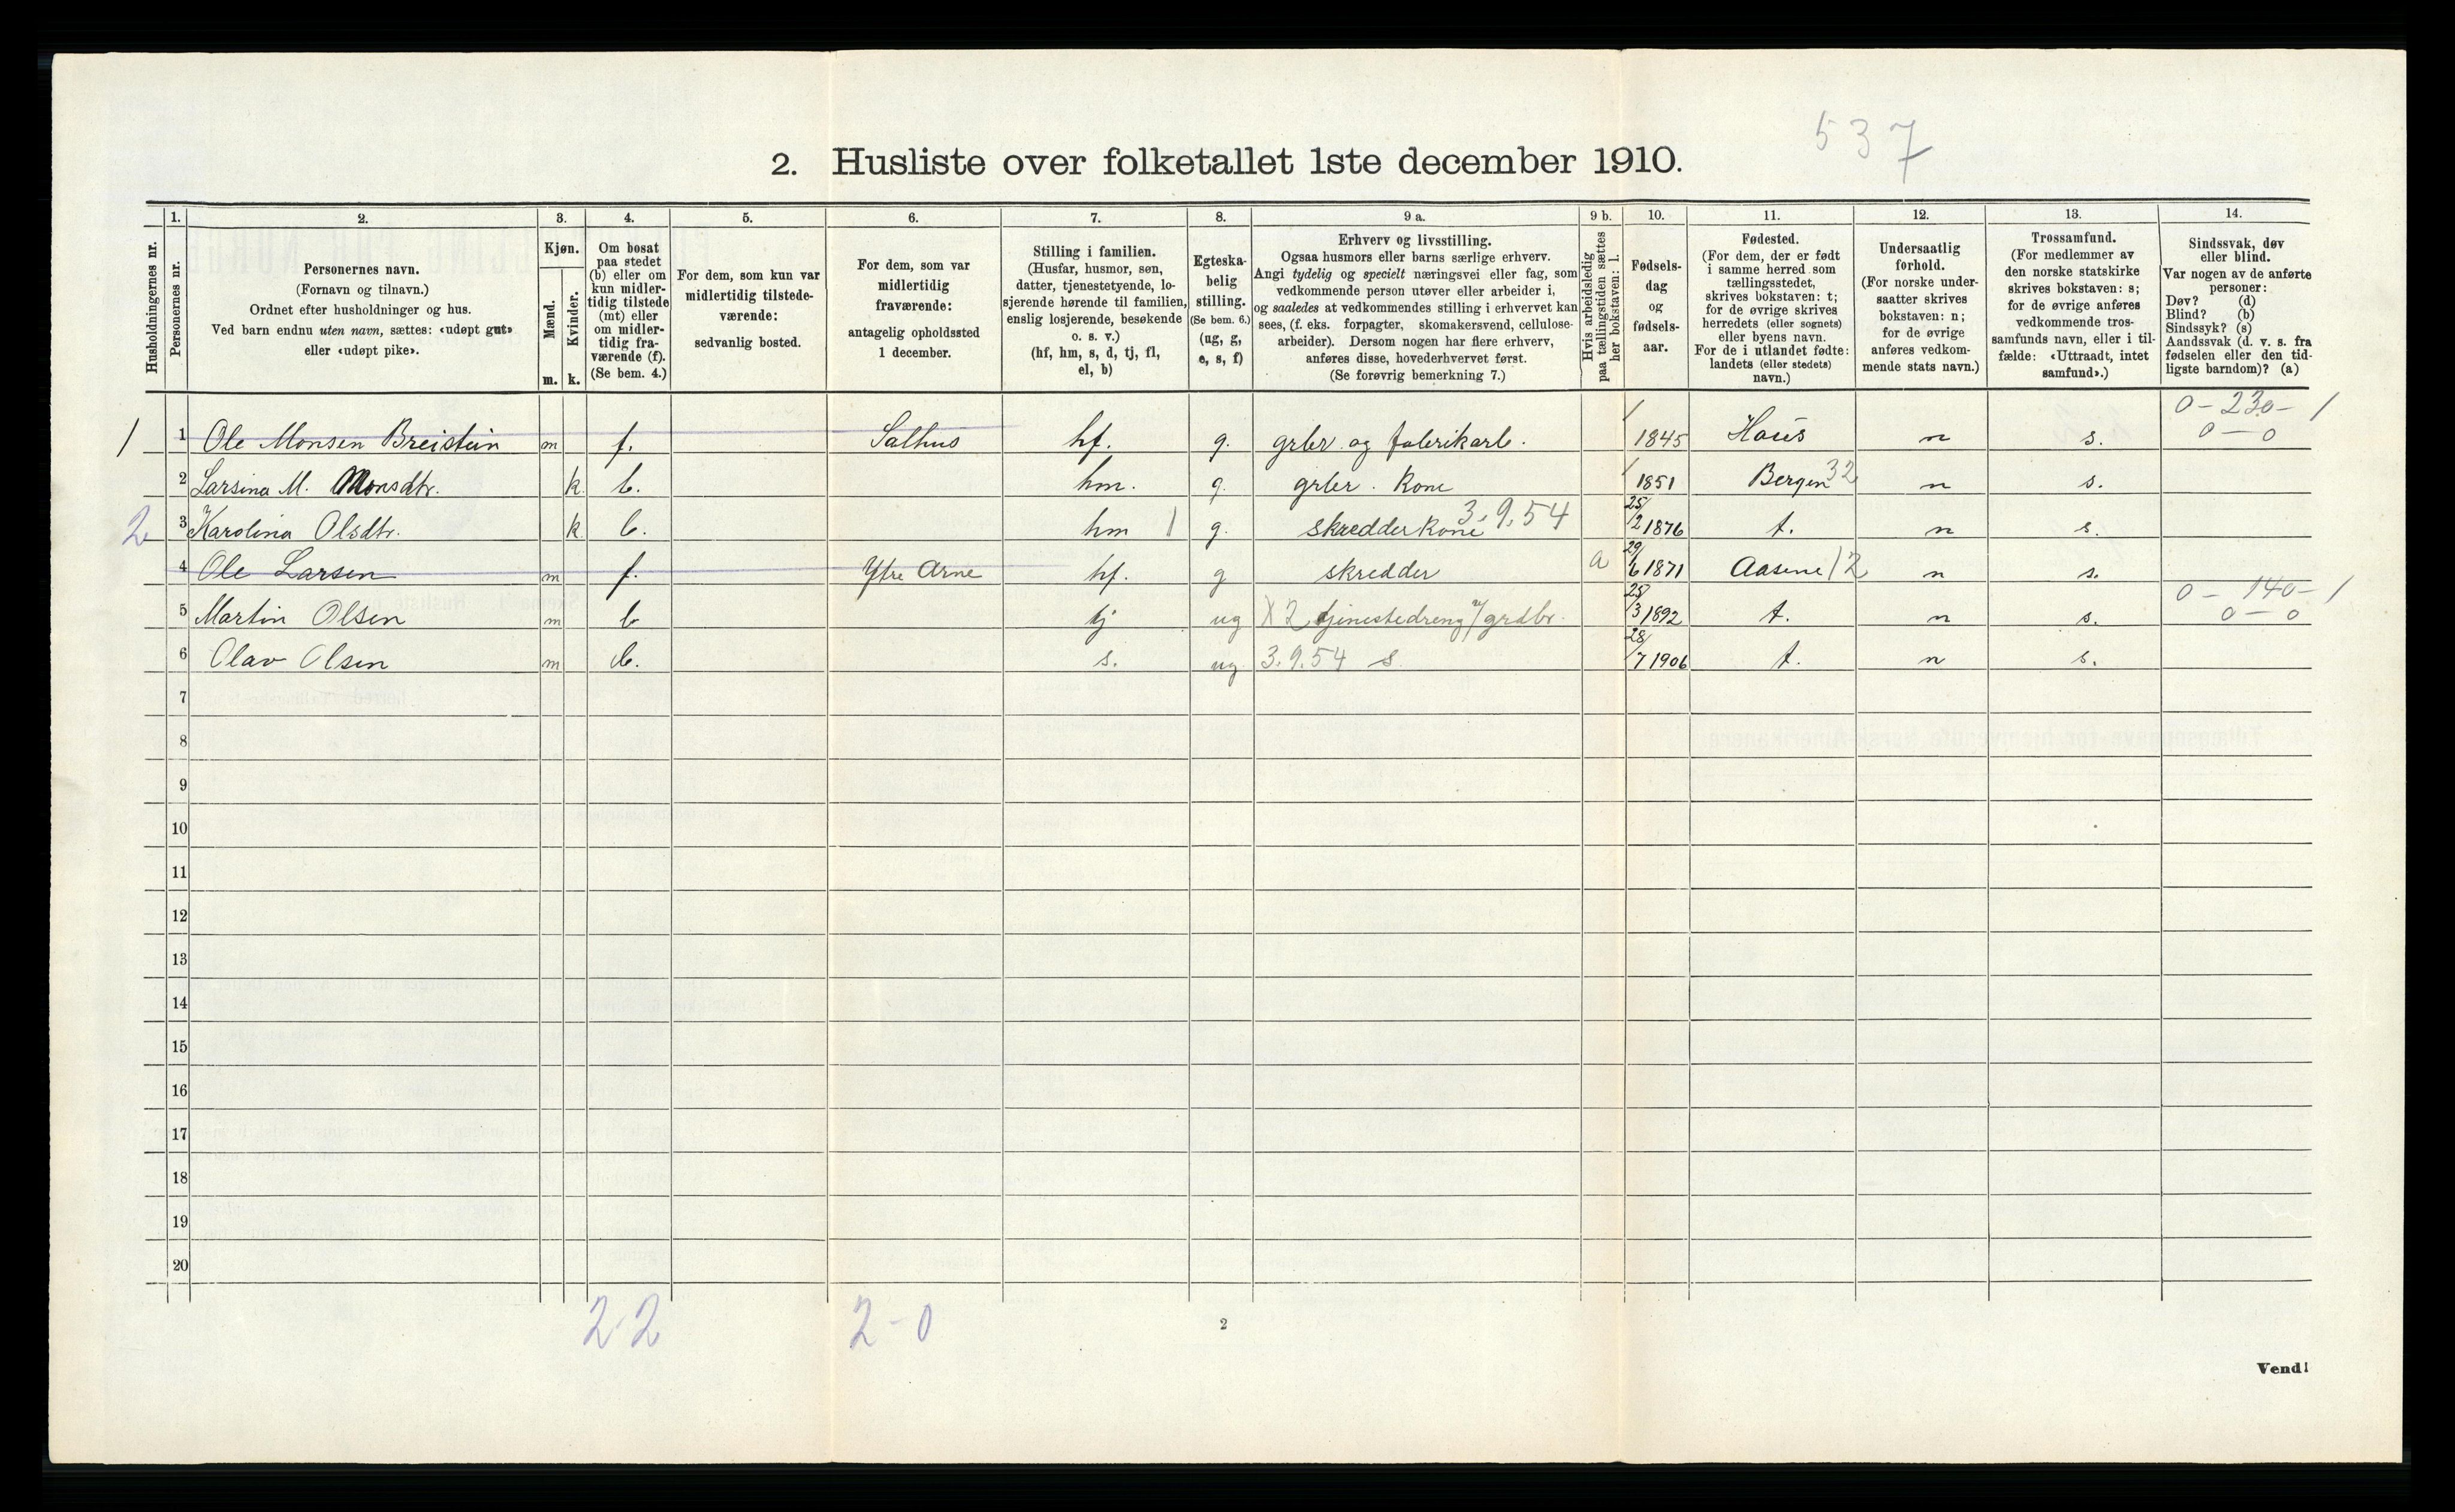 537
2. Husliste over folketallet 1ste december 1910.
Husholdningernes nr.
1. Personernes nr.
2. Personernes navn.
(Fornavn og tilnavn.)
Ordnet efter husholdninger og hus.
Ved barn endnu uten navn, sættes: «udøpt gut»
eller «udøpt pike».
3. Kjøn.
Mænd. m.
Kvinder. k.
4. Om bosat
paa stedet
(b) eller om
kun midler-
tidig tilstede
(mt) eller
om midler-
tidig fra-
værende (f).
(Se bem. 4.)
5. For dem, som kun var
midlertidig tilstede-
værende:
sedvanlig bosted.
6. For dem, som var
midlertidig
fraværende:
antagelig opholdssted
1 december.
7. Stilling i familien.
(Husfar, husmor, søn,
datter, tjenestetyende, lo-
sjerende hørende til familien,
enslig losjerende, besøkende
o. s. v.)
(hf, hm, s, d, tj, fl,
el, b)
8. Egteska-
belig
stilling.
(Se bem. 6.)
(ug, g,
e, s, f)
9 a. Erhverv og livsstilling.
Ogsaa husmors eller barns særlige erhverv.
Angi tydelig og specielt næringsvei eller fag, som
vedkommende person utøver eller arbeider i,
og saaledes at vedkommendes stilling i erhvervet kan
sees, (f. eks. forpagter, skomakersvend, cellulose-
arbeider). Dersom nogen har flere erhverv,
anføres disse, hovederhvervet først.
(Se forøvrig bemerkning 7.)
9 b. Hvis arbeidsledig
paa tællingstiden sættes
her bokstaven: l.
10. Fødsels-
dag
og
fødsels-
aar.
11. Fødested.
(For dem, der er født
i samme herred som
tællingsstedet,
skrives bokstaven: t;
for de øvrige skrives
herredets (eller sognets)
eller byens navn.
For de i utlandet fødte:
landets (eller stedets)
navn.)
12. Undersaatlig
forhold.
(For norske under-
saatter skrives
bokstaven: n;
for de øvrige
anføres vedkom-
mende stats navn.)
13. Trossamfund.
(For medlemmer av
den norske statskirke
skrives bokstaven: s;
for de øvrige anføres
vedkommende tros-
samfunds navn, eller i til-
fælde: «Uttraadt, intet
samfund».)
14. Sindssvak, døv
eller blind.
Var nogen av de anførte
personer:
Døv? (d)
Blind? (b)
Sindssyk? (s)
Aandssvak (d. v. s. fra
fødselen eller den tid-
ligste barndom)? (a)
1 1 Ole Monsen Breistein m f. Salhus hf. g. grbr. og fabrikarb. 1845 Haus n s. 0-230-1 0-0
2 Larsina M. Monsdtr. k. b. hm. g. grbr. kone 1851 Bergen 32 n s.
2 3 Karolina Olsdtr. k. b. hm 1 g. skredderkone 3.9.54 25/2 1876 t. n s.
4 Ole Larsen m f. Ytre Arne hf. g skredder a 29/6 1871 Aasene 12 n s.
5 Martin Olsen m b tj ug X2 tjenestedreng / grdbr. 25/3 1892 t. n s. 0-140-1 0-0
6 Olav Olsen m b. s. ug 3.9.54 s. 28/7 1906 t. n s.
7
8
9
10
11
12
13
14
15
16
17
18
19
20
2 2 2-0
2
Vend!